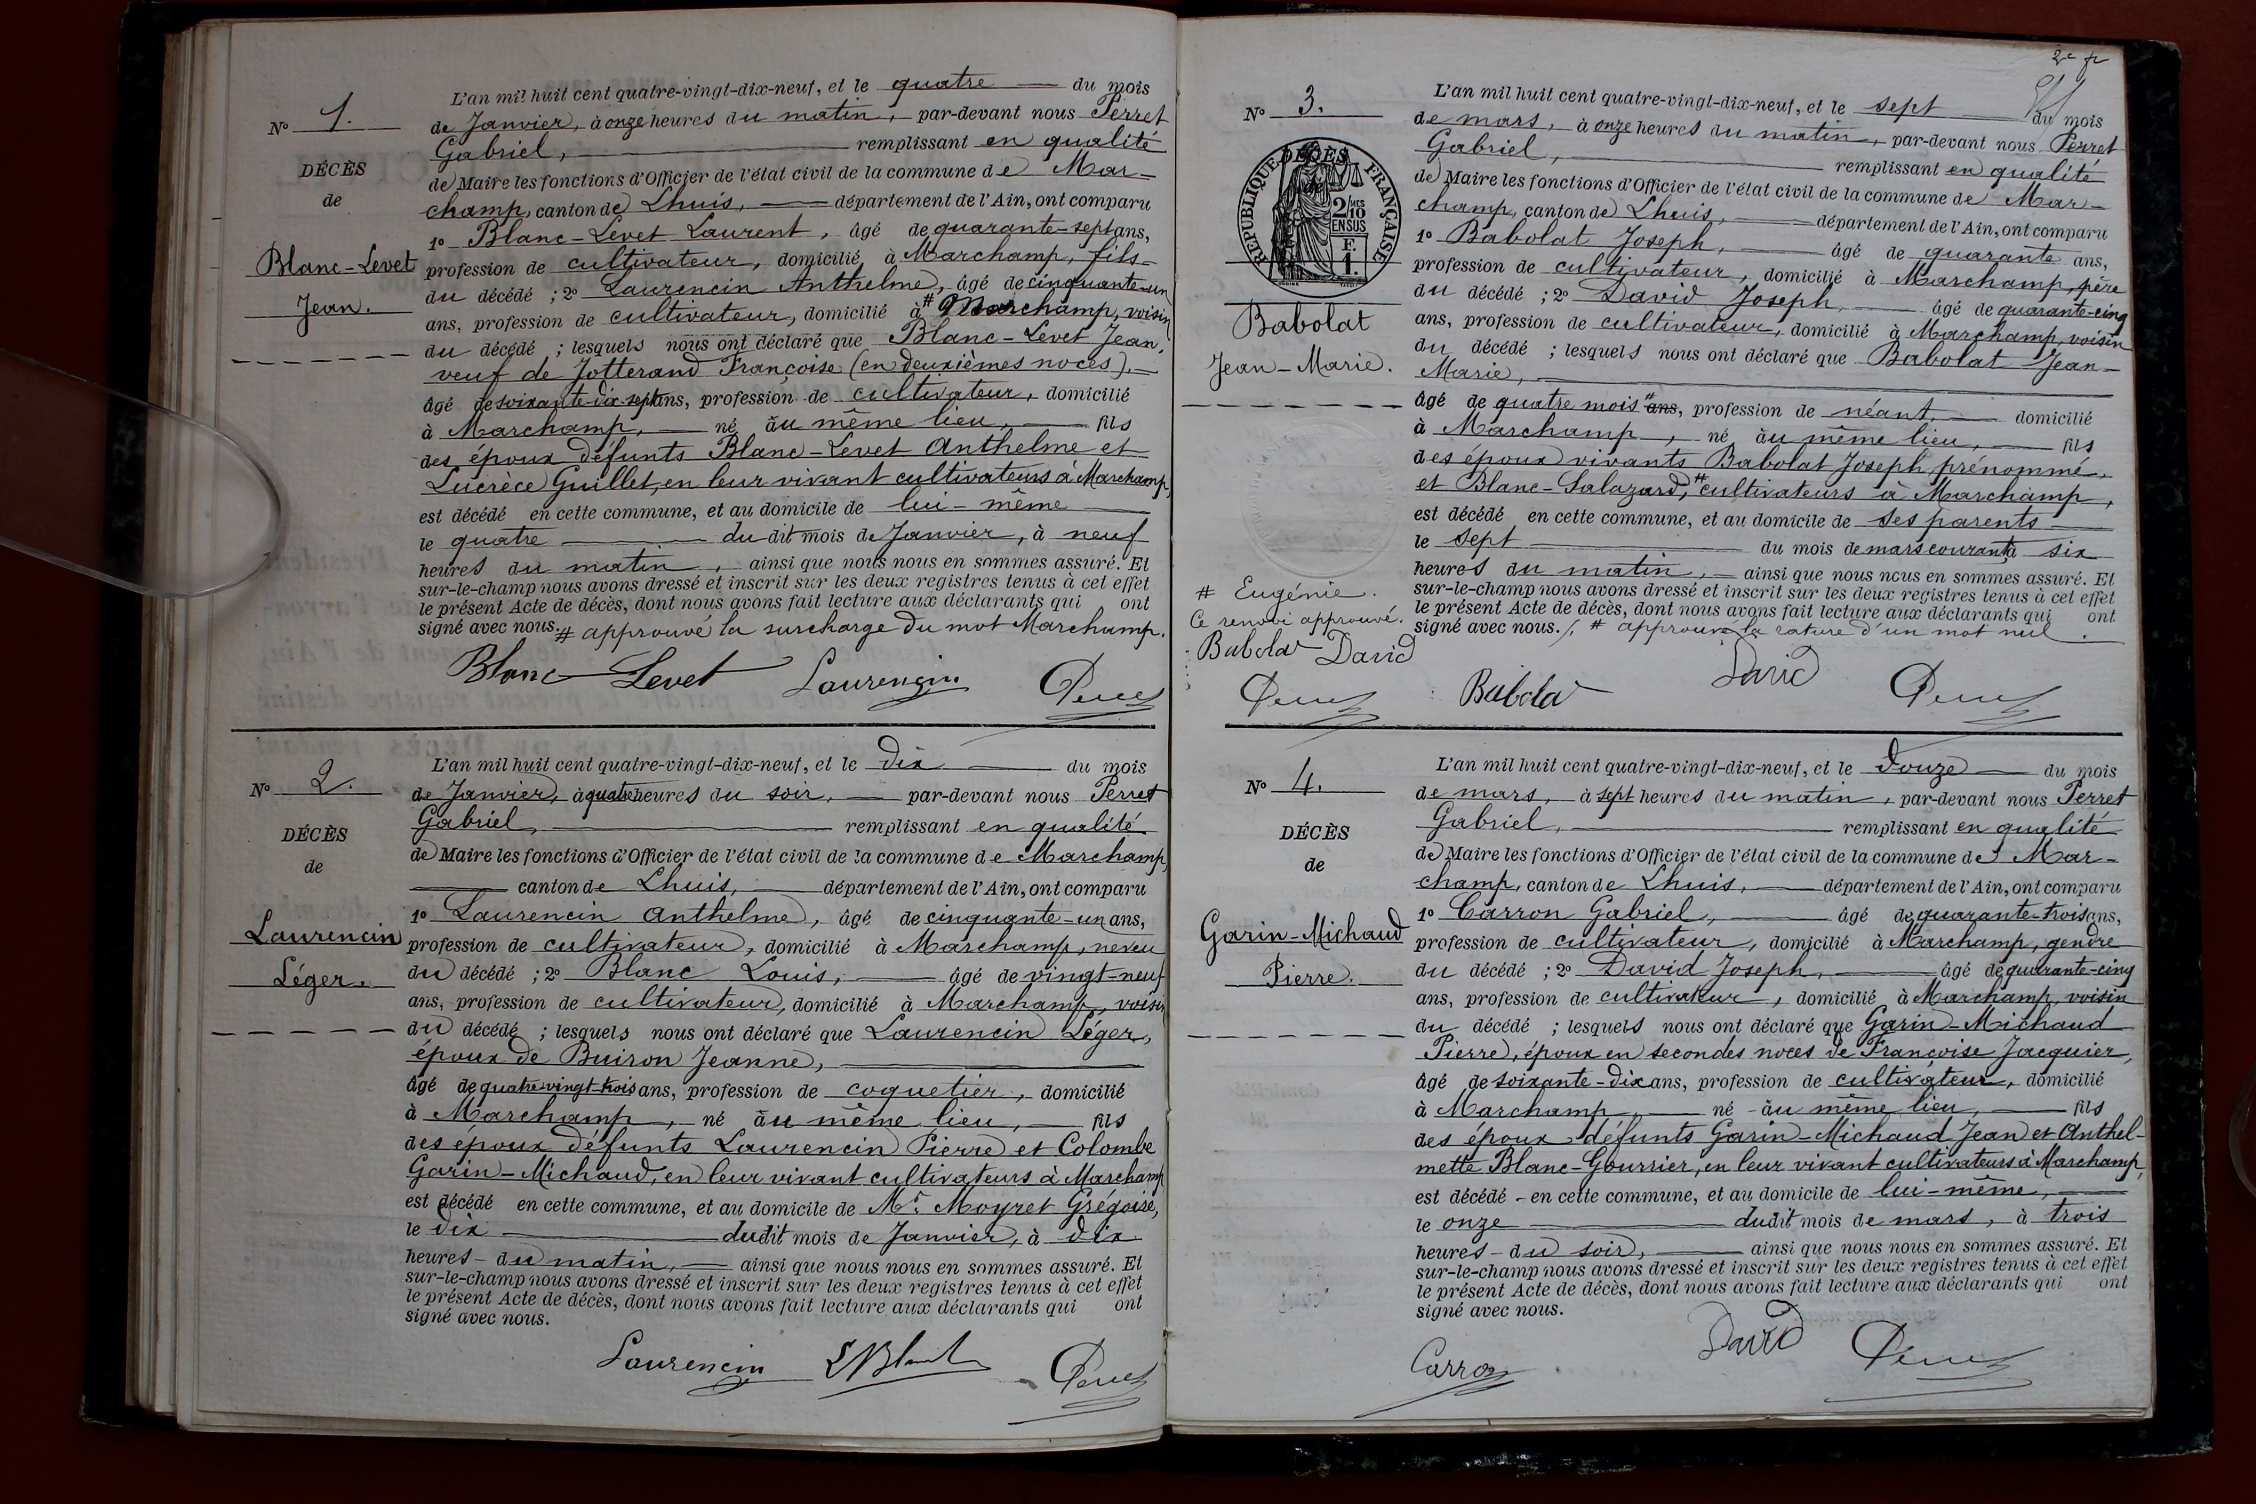 N° 1.
DÉCÈS
de
Blanc-Levet
Jean.
L'an mil huit cent quatre-vingt-dix-neuf, et le quatre du mois
de Janvier, à onze heures du matin, par-devant nous Perret
Gabriel, remplissant en qualité
de Maire les fonctions d'Officier de l'état civil de la commune de Mar-
champ, canton de Lhuis, département de l'Ain, ont comparu
1° Blanc-Levet Laurent, âgé de quarante-sept ans,
profession de cultivateur, domicilié à Marchamp, fils
du décédé ; 2° Laurencin Anthelme, âgé de cinquante-un
ans, profession de cultivateur, domicilié à # Marchamp, voisin
du décédé ; lesquels nous ont déclaré que Blanc-Levet Jean,
veuf de Jotterand Françoise (en deuxièmes noces),
âgé de soixante-dix-sept ans, profession de cultivateur, domicilié
à Marchamp, né au même lieu, fils
des époux défunts Blanc-Levet Anthelme et
Lucrèce Guillet, en leur vivant cultivateurs à Marchamp,
est décédé en cette commune, et au domicile de lui-même
le quatre du dit mois de Janvier, à neuf
heures du matin, ainsi que nous nous en sommes assuré. Et
sur-le-champ nous avons dressé et inscrit sur les deux registres tenus à cet effet
le présent Acte de décès, dont nous avons fait lecture aux déclarants qui ont
signé avec nous. # approuvé la surcharge du mot Marchamp.
Blanc-Levet Laurencin Perret
N° 2.
DÉCÈS
de
Laurencin
Léger.
L'an mil huit cent quatre-vingt-dix-neuf, et le dix du mois
de Janvier, à quatre heures du soir, par-devant nous Perret
Gabriel, remplissant en qualité
de Maire les fonctions d'Officier de l'état civil de la commune de Marchamp,
canton de Lhuis, département de l'Ain, ont comparu
1° Laurencin Anthelme, âgé de cinquante-un ans,
profession de cultivateur, domicilié à Marchamp, neveu
du décédé ; 2° Blanc Louis, âgé de vingt-neuf
ans, profession de cultivateur, domicilié à Marchamp, voisin
du décédé ; lesquels nous ont déclaré que Laurencin Léger,
époux de Buiron Jeanne,
âgé de quatre-vingt-trois ans, profession de coquetier, domicilié
à Marchamp, né au même lieu, fils
des époux défunts Laurencin Pierre et Colombe
Garin-Michaud, en leur vivant cultivateurs à Marchamp
est décédé en cette commune, et au domicile de Mr. Moyret Grégoire,
le dix dudit mois de Janvier, à dix
heures du matin, ainsi que nous nous en sommes assuré. Et
sur-le-champ nous avons dressé et inscrit sur les deux registres tenus à cet effet
le présent Acte de décès, dont nous avons fait lecture aux déclarants qui ont
signé avec nous.
Laurencin L Blanc Perret
2e f
N° 3.
DÉCÈS
RÉPUBLIQUE FRANÇAISE
2/10 MES
EN SUS
F.
1.
Babolat
Jean-Marie.
# Eugénie.
Ce renvoi approuvé.
Babolat David
Perret
L'an mil huit cent quatre-vingt-dix-neuf, et le sept du mois
de mars, à onze heures du matin, par-devant nous Perret
Gabriel, remplissant en qualité
de Maire les fonctions d'Officier de l'état civil de la commune de Mar-
champ, canton de Lhuis, département de l'Ain, ont comparu
1° Babolat Joseph, âgé de quarante ans,
profession de cultivateur, domicilié à Marchamp, père
du décédé ; 2° David Joseph, âgé de quarante-cinq
ans, profession de cultivateur, domicilié à Marchamp, voisin
du décédé ; lesquels nous ont déclaré que Babolat Jean-
Marie,
âgé de quatre mois # ans, profession de néant, domicilié
à Marchamp, né au même lieu, fils
des époux vivants Babolat Joseph, prénommé,
et Blanc-Salazard, # cultivateurs à Marchamp,
est décédé en cette commune, et au domicile de ses parents
le sept du mois de mars courant à six
heures du matin, ainsi que nous nous en sommes assuré. Et
sur-le-champ nous avons dressé et inscrit sur les deux registres tenus à cet effet
le présent Acte de décès, dont nous avons fait lecture aux déclarants qui ont
signé avec nous. /. # approuvé la rature d'un mot nul.
Babolat David Perret
N° 4.
DÉCÈS
de
Garin-Michaud
Pierre.
L'an mil huit cent quatre-vingt-dix-neuf, et le douze du mois
de mars, à sept heures du matin, par-devant nous Perret
Gabriel, remplissant en qualité
de Maire les fonctions d'Officier de l'état civil de la commune de Mar-
champ, canton de Lhuis, département de l'Ain, ont comparu
1° Carron Gabriel, âgé de quarante-trois ans,
profession de cultivateur, domicilié à Marchamp, gendre
du décédé ; 2° David Joseph, âgé de quarante-cinq
ans, profession de cultivateur, domicilié à Marchamp, voisin
du décédé ; lesquels nous ont déclaré que Garin-Michaud
Pierre, époux en secondes noces de Françoise Jacquier,
âgé de soixante-dix ans, profession de cultivateur, domicilié
à Marchamp, né au même lieu, fils
des époux défunts Garin-Michaud Jean et Anthel-
mette Blanc-Goursier, en leur vivant cultivateurs à Marchamp,
est décédé en cette commune, et au domicile de lui-même,
le onze dudit mois de mars, à trois
heures du soir, ainsi que nous nous en sommes assuré. Et
sur-le-champ nous avons dressé et inscrit sur les deux registres tenus à cet effet
le présent Acte de décès, dont nous avons fait lecture aux déclarants qui ont
signé avec nous.
Carron David Perret